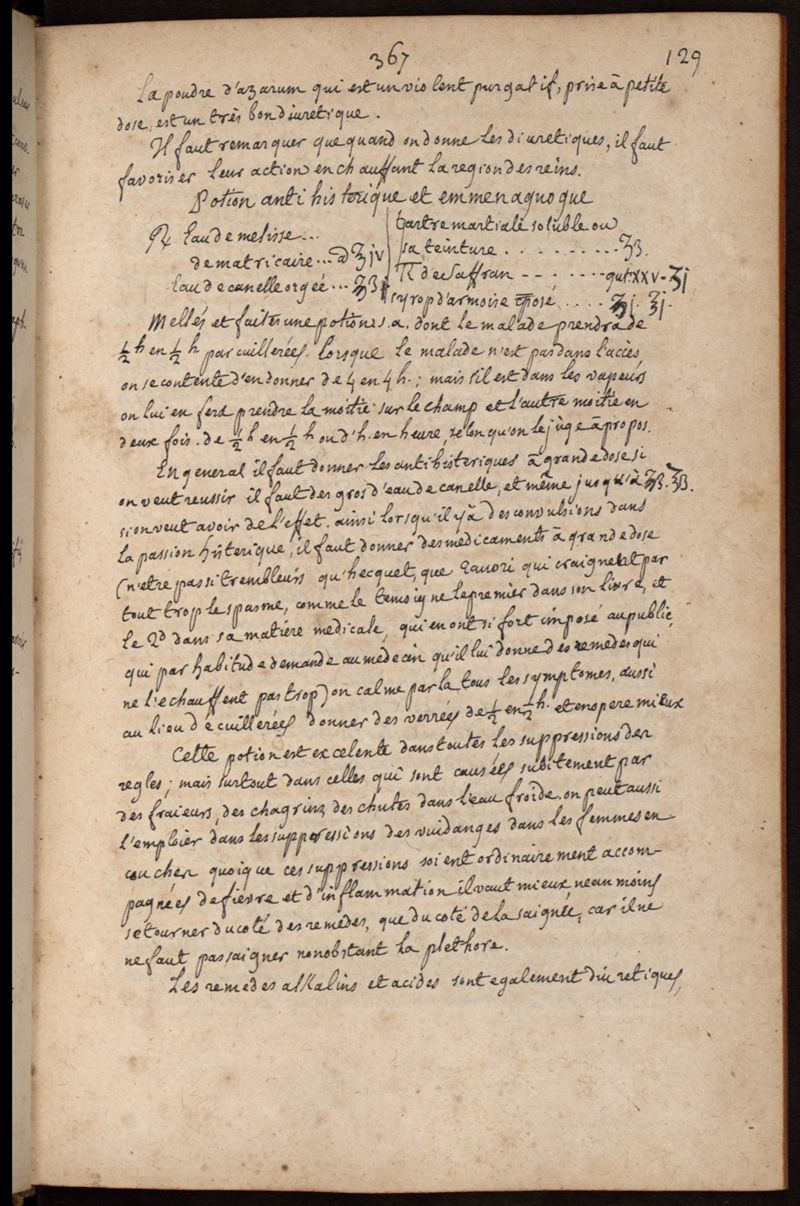 367
129
La poudre d'azarum qui est un violent purgatif, prise à petite
dose, est un très bon diuretique.
Il faut remarquer que quand on donne les diuretiques, il faut
favoriser leur action en chauffant la region des reins.
Potion anti historique et emmenaguoque
℞ Eau de melisse...
de matricaire ... a ʒiv
Eau de canelle orgée ... ʒ3
tartre martiale soluble ou
sa teinture . . . . . . . . ʒ3.
de saffran - - - - - - gut XXV - ʒj
syrop d'armoise . . . . ʒj. ʒj.
Mellés et faites une potion s.a. dont le malade prendra de
½ h en ½ h par cuillerées. Lorsque le malade n'est pas dans l'accès,
on se contente d'en donner de 4 en 4 h.; mais s'il est dans les vapeurs
on lui en fera prendre la moitié sur le champ et l'autre moitié en
deux fois. de ½ h en ½ h ou d'h. en heure, selon qu'on le jùge à propos.
En general il faut donner les antihisteriques à grande dose si
on veut reussir il faut des gros d'eau de canelle, et même jusqu'à ʒ3. ʒ3.
si on veut avoir de l'effet. ainsi lorsqu'il y à des convulsions dans
la passion hÿsterique, il faut donner des medicaments à grande dose
(n'etre pas si trembleurs qu'hecquet, que qui craignent par
tout trop le spasme, comme le temoigne le premier dans son livre, et
le 2d dans sa matiére medicale, qui en ont si fort imposé au public,
qui par habitude demande au médecin qu'il lui donne des remedes qui
ne l'echauffent pas trop) on calme par la tous les symptomes, aussi
au lieu de cuillerées donner des verrées de ½ en ½ h. et en opere mieux
Cette potion est excelente dans toutes les suppressions des
regles; mais surtout dans celles qui sont causées subitement par
des fraieurs, des chagrins, des chutes dans l'eau froide. on peut aussi
l'emploier dans les suppressions des vuidanges dans les femmes en
coucher quoique ces suppressions soient ordinairement accom-
pagnées de fievre et d'inflammation il vaut mieux neanmoins
se tourner du coté des remedes, que du coté de la saignée, car il ne
ne faut pas saigner nonobstant la plethore.
Les remedes alkalins et acides sont egalement diuretiques,